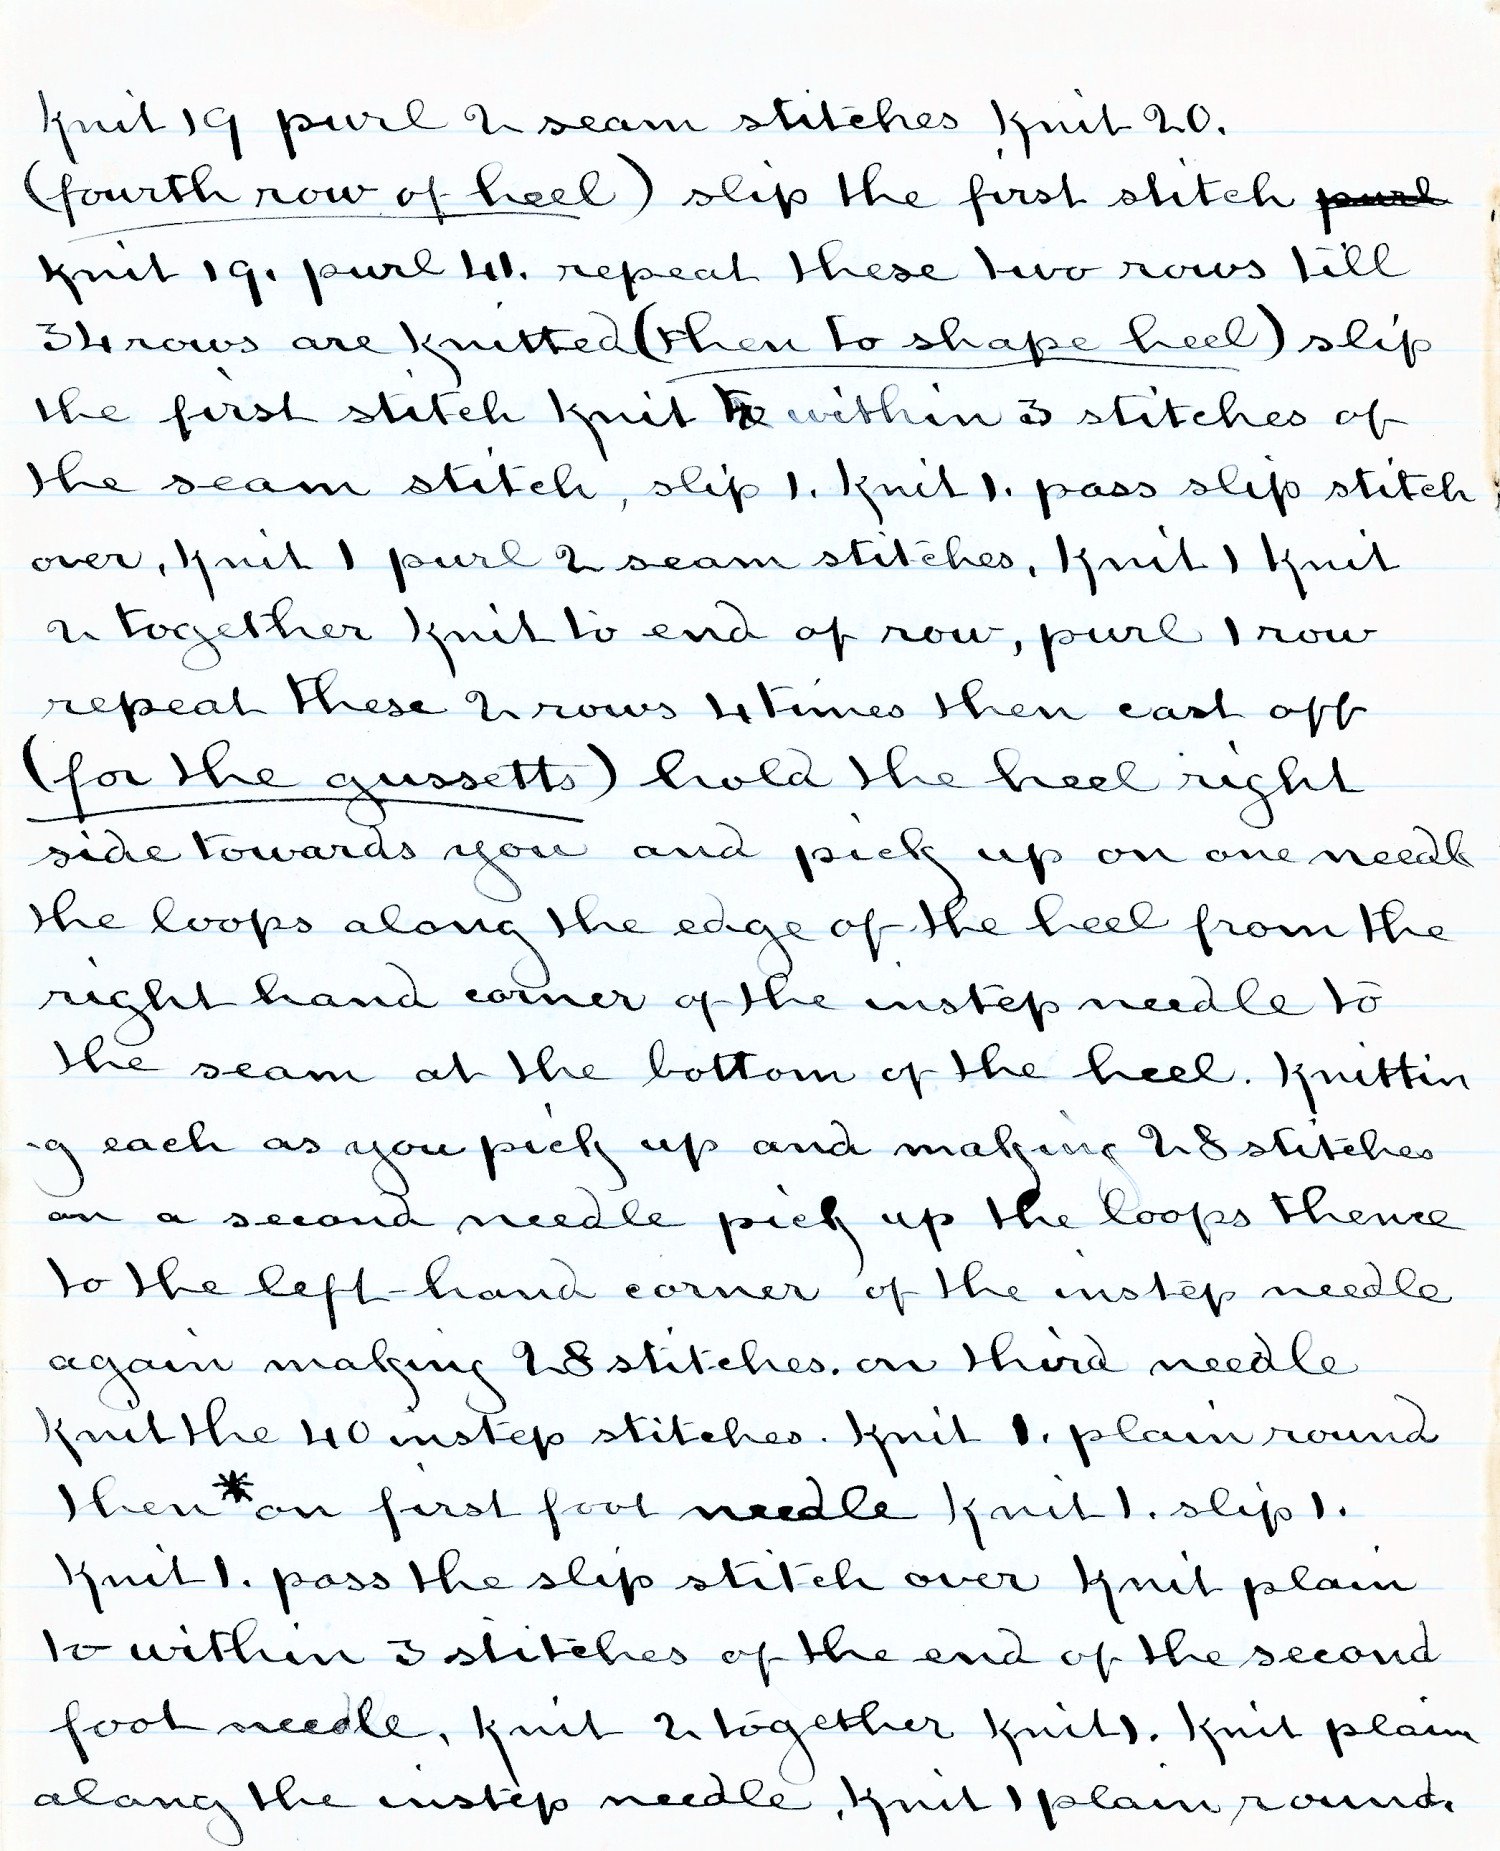 Knit 19 purl 2 seam stitches Knit 20.
(fourth row of heel) slip the first stitch purl
Knit 19. purl 41. repeat these two rows till
34 rows are Knitted (then to shape heel) slip
the first stitch Knit to within 3 stitches of
the seam stitch, slip 1. Knit 1. pass slip stitch
over, Knit 1 purl 2 seam stitches, Knit 1 Knit
2 together Knit to end of row, purl 1 row
repeat these 2 rows 4 times then cast off
(for the gussetts) hold the heel right
side towards you and pick up on one needle
the loops along the edge of the heel from the
right hand corner of the instep needle to
the seam at the bottom of the heel. Knittin
-g each as you pick up and making 28 stitches
on a second needle pick up the loops thence
to the left-hand corner of the instep needle
again making 28 stitches. on third needle
Knit the 40 instep stitches. Knit 1. plain round
then * on first foot needle Knit 1. slip 1.
Knit 1. pass the slip stitch over Knit plain
to within 3 stitches of the end of the second
foot needle, Knit 2 together Knit 1. Knit plain
along the instep needle, Knit 1 plain round.